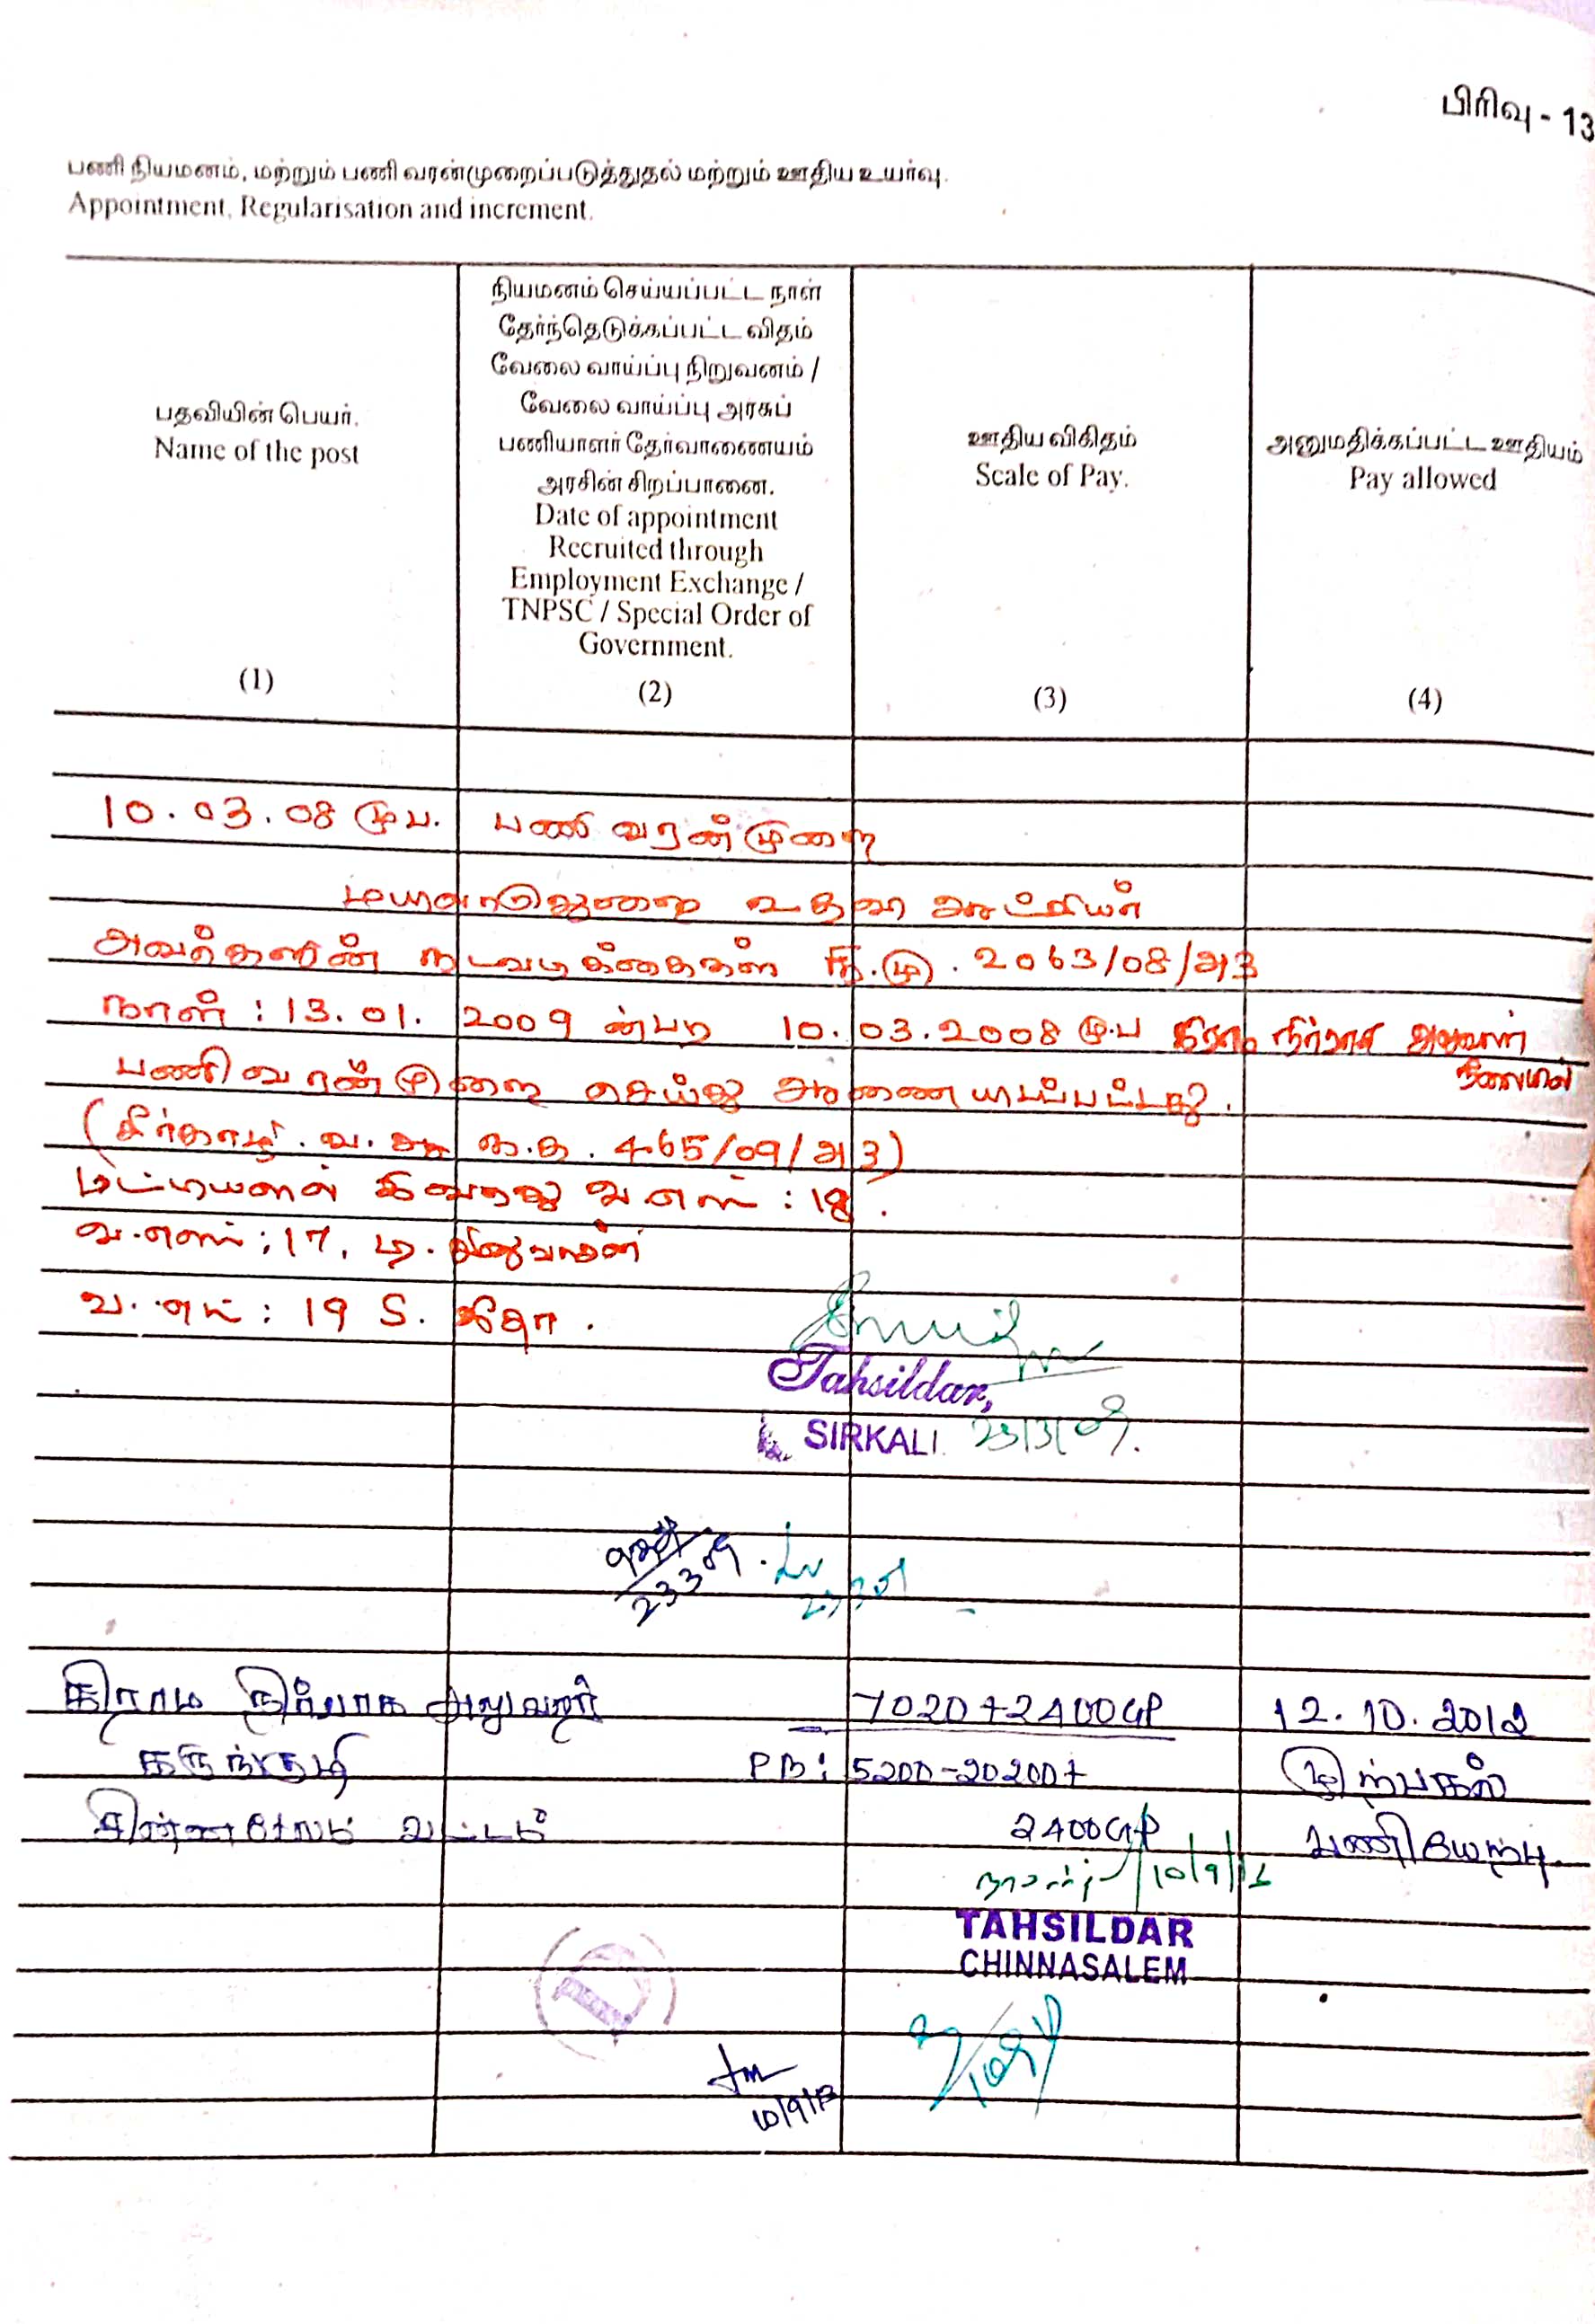 பிரிவு - 13
பணி நியமனம், மற்றும் பணி வரன்முறைப்படுத்துதல் மற்றும் ஊதிய உயர்வு.
Appointment, Regularisation and increment.
பதவியின் பெயர்.
Name of the post
(1)
நியமனம் செய்யப்பட்ட நாள்
தேர்ந்தெடுக்கப்பட்ட விதம்
வேலை வாய்ப்பு நிறுவனம் /
வேலை வாய்ப்பு அரசுப்
பணியாளர் தேர்வாணையம்
அரசின் சிறப்பானை.
Date of appointment
Recruited through
Employment Exchange /
TNPSC / Special Order of
Government.
(2)
ஊதிய விகிதம்
Scale of Pay.
(3)
அனுமதிக்கப்பட்ட ஊதியம்
Pay allowed
(4)
10.03.08 மு.ப. பணி வரன்முறை
மயிலாடுதுறை வருவாய் கோட்டாட்சியர்
அவர்களின் நடவடிக்கைகள் ந.மு. 2063/08/அ3
நாள் : 13.01.2009 ன்படி 10.03.2008 மு.ப கிராம நிர்வாக அலுவலர்
நிலையில்
பணி வரன்முறை செய்து ஆணையிடப்பட்டது.
(சீர்காழி. வ.ஆ. ந.க. 465/09/அ3)
பட்டியலில் இவரது வ.எண் : 18.
வ.எண் : 17.
வ.எண் : 19 S. கீதா.
Tahsildar,
SIRKALI. 23/3/09.
23 3 09
கிராம நிர்வாக அலுவலர் 7020+2400GP 12.10.2012
கருங்குழி PB: 5200-20200+ முற்பகல்
சின்னசேலம் வட்டம் 2400GP பணியேற்பு
TAHSILDAR
CHINNASALEM
10/9/13